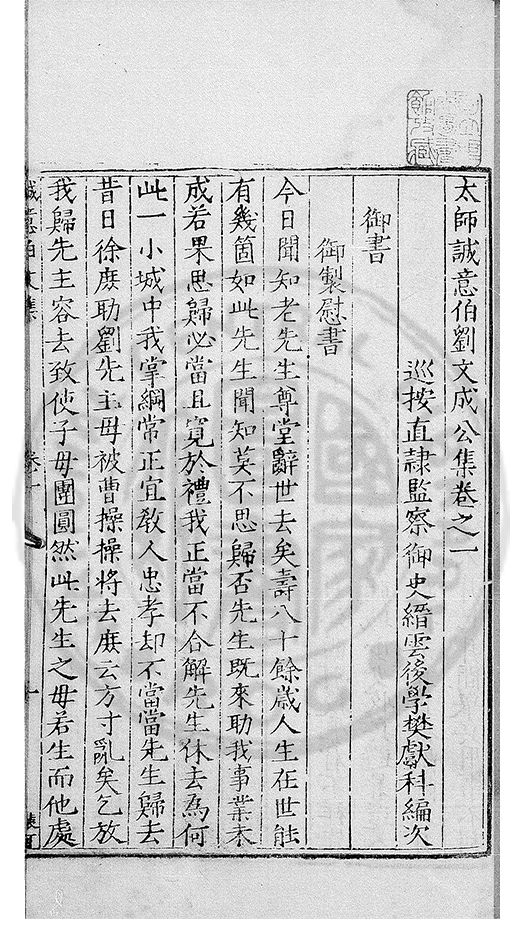 太師誠意伯劉文成公集卷之一
巡按直隸監察御史縉雲後學樊獻科編次
御書
御製慰書
今日聞知老先生尊堂辭世去矣壽八十餘歲人生在世能
有幾箇如此先生聞知莫不思歸否先生既來助我事業未
成若果思歸必當且寬於禮我正當不合解先生休去為何
此一小城中我掌綱常正宜教人忠孝却不當當先生歸去
昔日徐庶助劉先主母被曹操操將去庶云方寸亂矣乞放
我歸先主容去致使子母團圓然此先生之母若生而他處
誠意伯文集 卷一 一